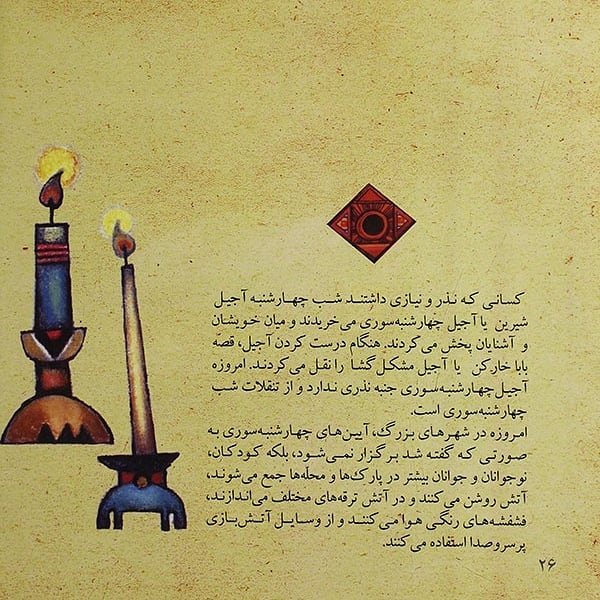 کسانی که نذر و نیازی داشتند شب چهارشنبه آجیل
شیرین یا آجیل چهارشنبه‌سوری می‌خریدند و میان خویشان
و آشنایان پخش می‌کردند. هنگام درست کردن آجیل، قصه
بابا خارکن یا آجیل مشکل‌گشا را نقل می‌کردند. امروزه
آجیل‌چهارشنبه‌سوری جنبه نذری ندارد و از تنقلات شب
چهارشنبه‌سوری است.
امروزه در شهرهای بزرگ، آیین‌های چهارشنبه‌سوری به
صورتی که گفته شد برگزار نمی‌شود، بلکه کودکان،
نوجوانان و جوانان بیشتر در پارک‌ها و محلّه‌ها جمع می‌شوند،
آتش روشن می‌کنند و در آتش ترقه‌های مختلف می‌اندازند،
فشفشه‌های رنگی هوا می‌کنند و از وسایل آتش‌بازی
پرسروصدا استفاده می‌کنند.
۲۶